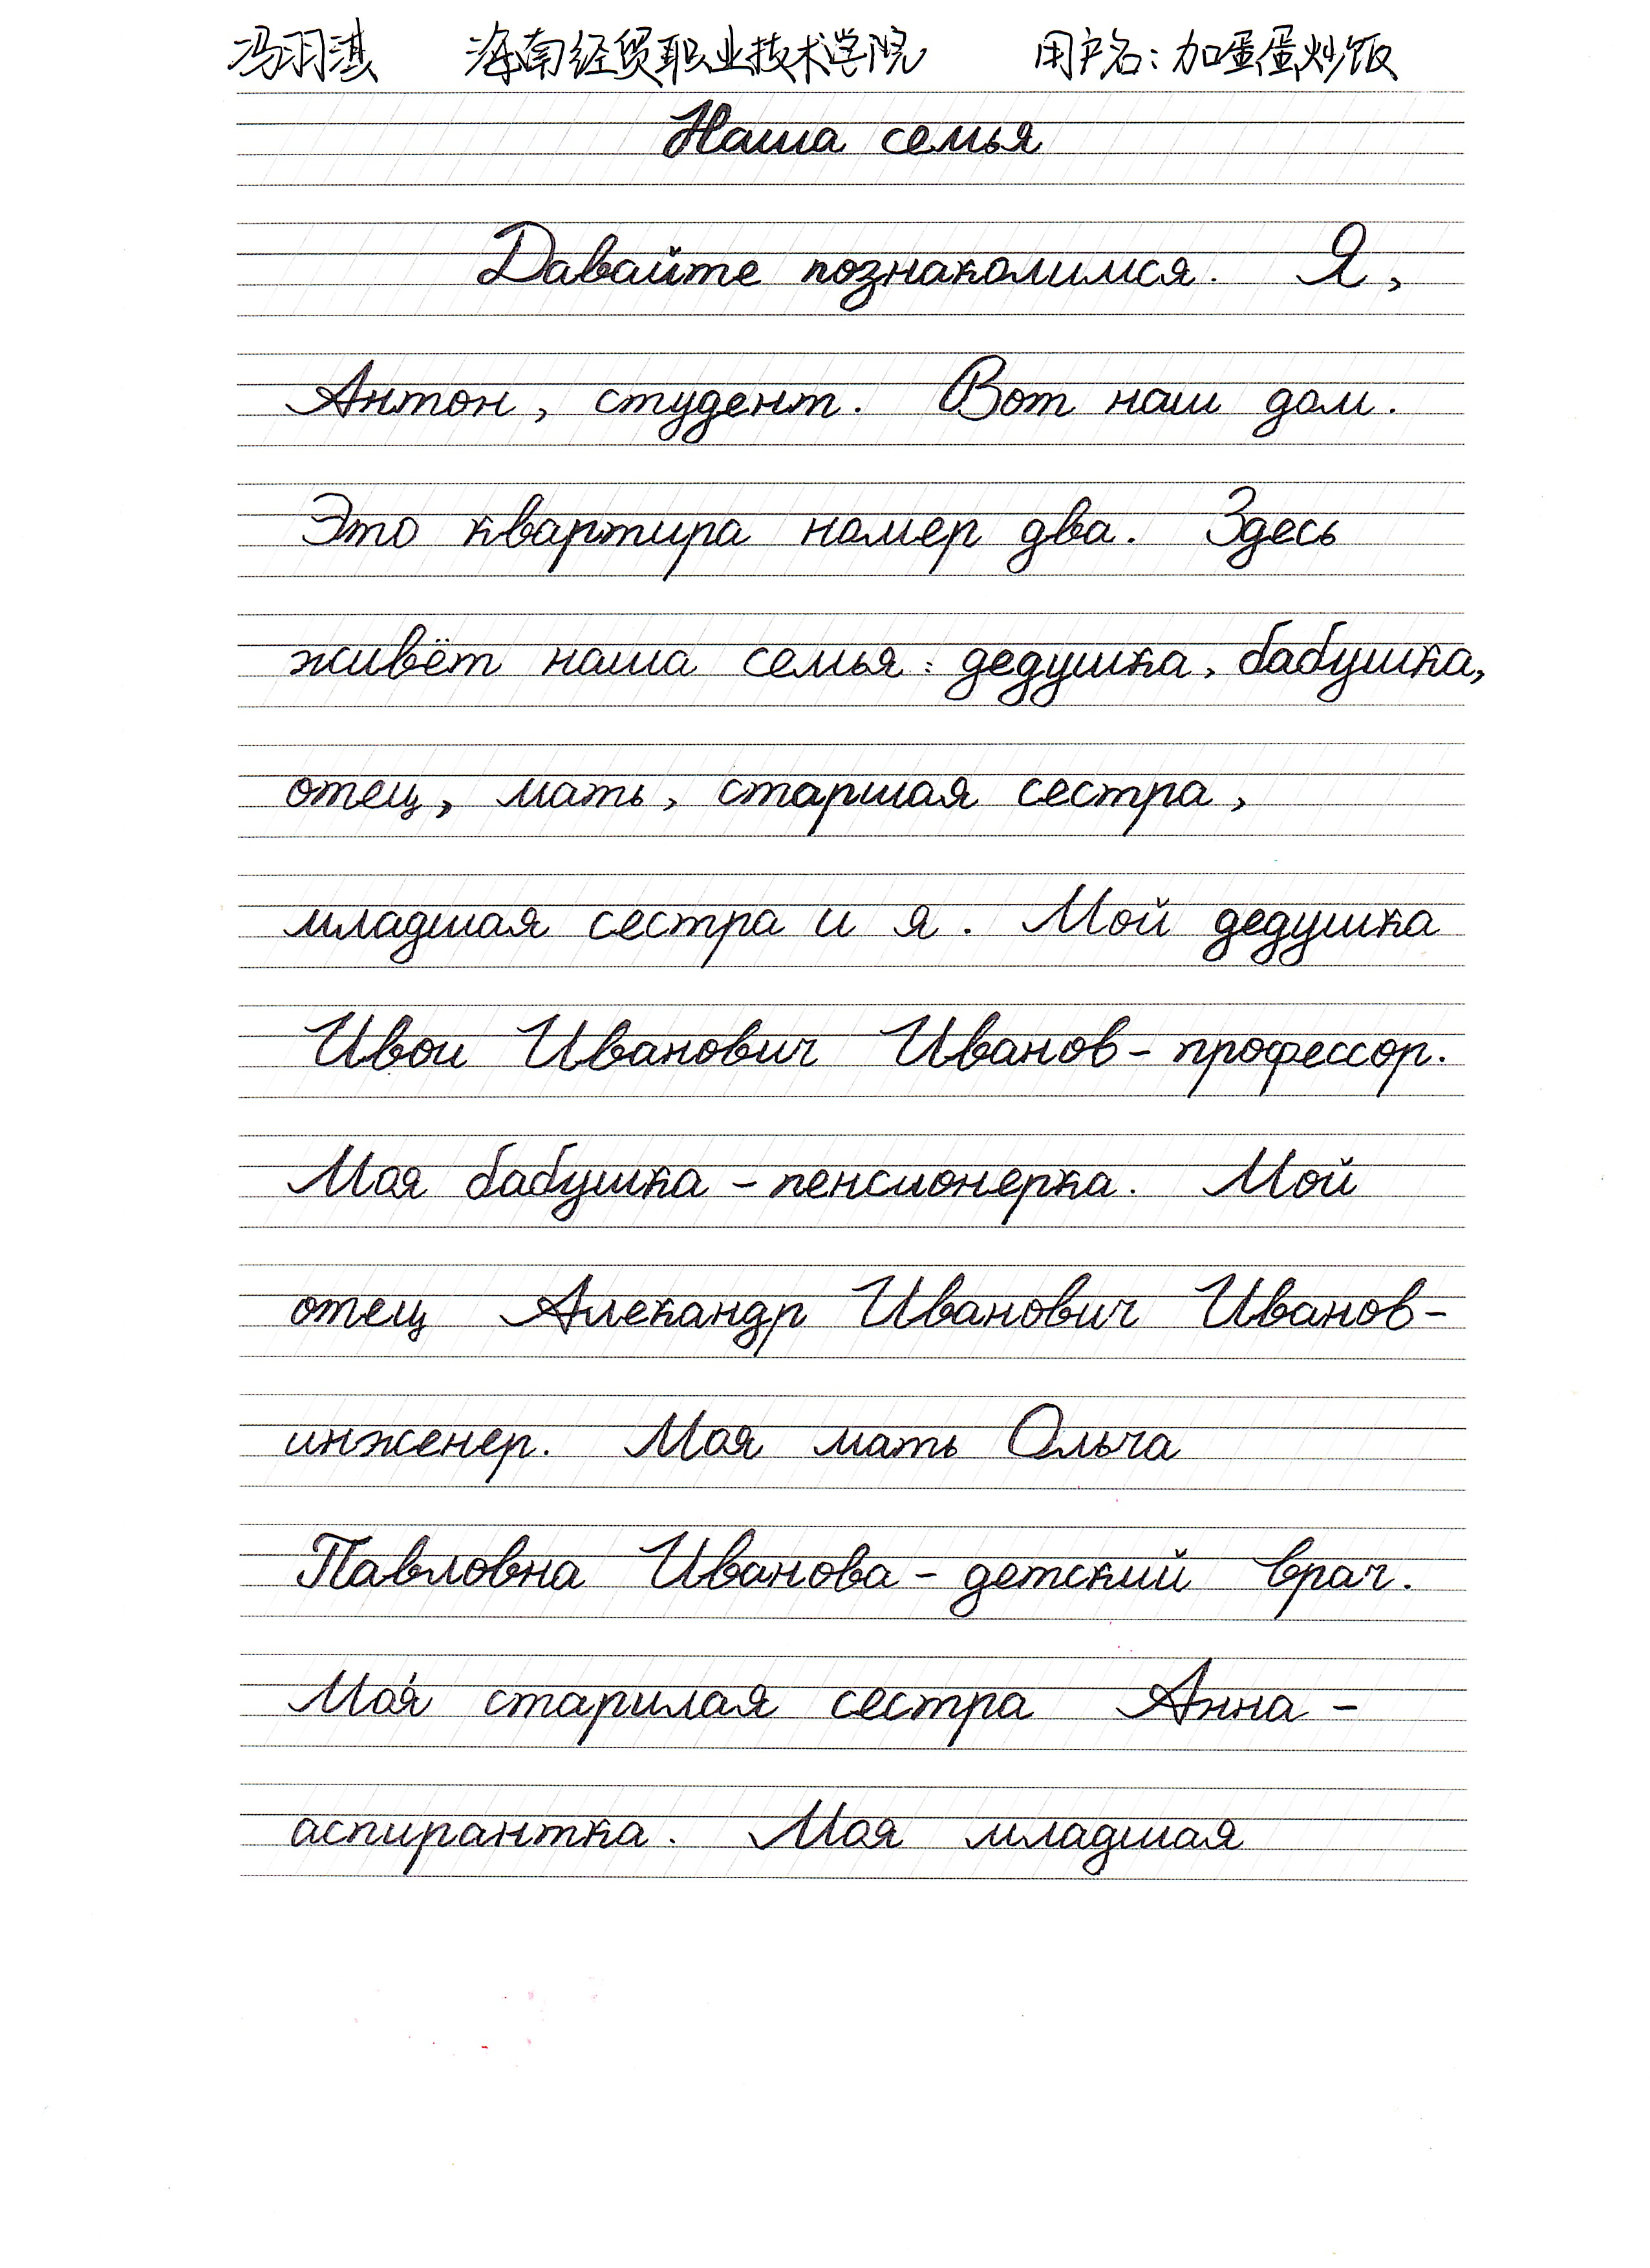 冯羽淇 海南经贸职业技术学院 用户名：加蛋蛋炒饭
Наша семья
Давайте познакомимся. Я,
Антон, студент. Вот наш дом.
Это квартира номер два. Здесь
живёт наша семья: дедушка, бабушка,
отец, мать, старшая сестра,
младшая сестра и я. Мой дедушка
Ивои Иванович Иванов - профессор.
Моя бабушка - пенсионерка. Мой
отец Александр Иванович Иванов -
инженер. Моя мать Ольча
Павловна Иванова - детский врач.
Моя старшая сестра Анна -
аспирантка. Моя младшая